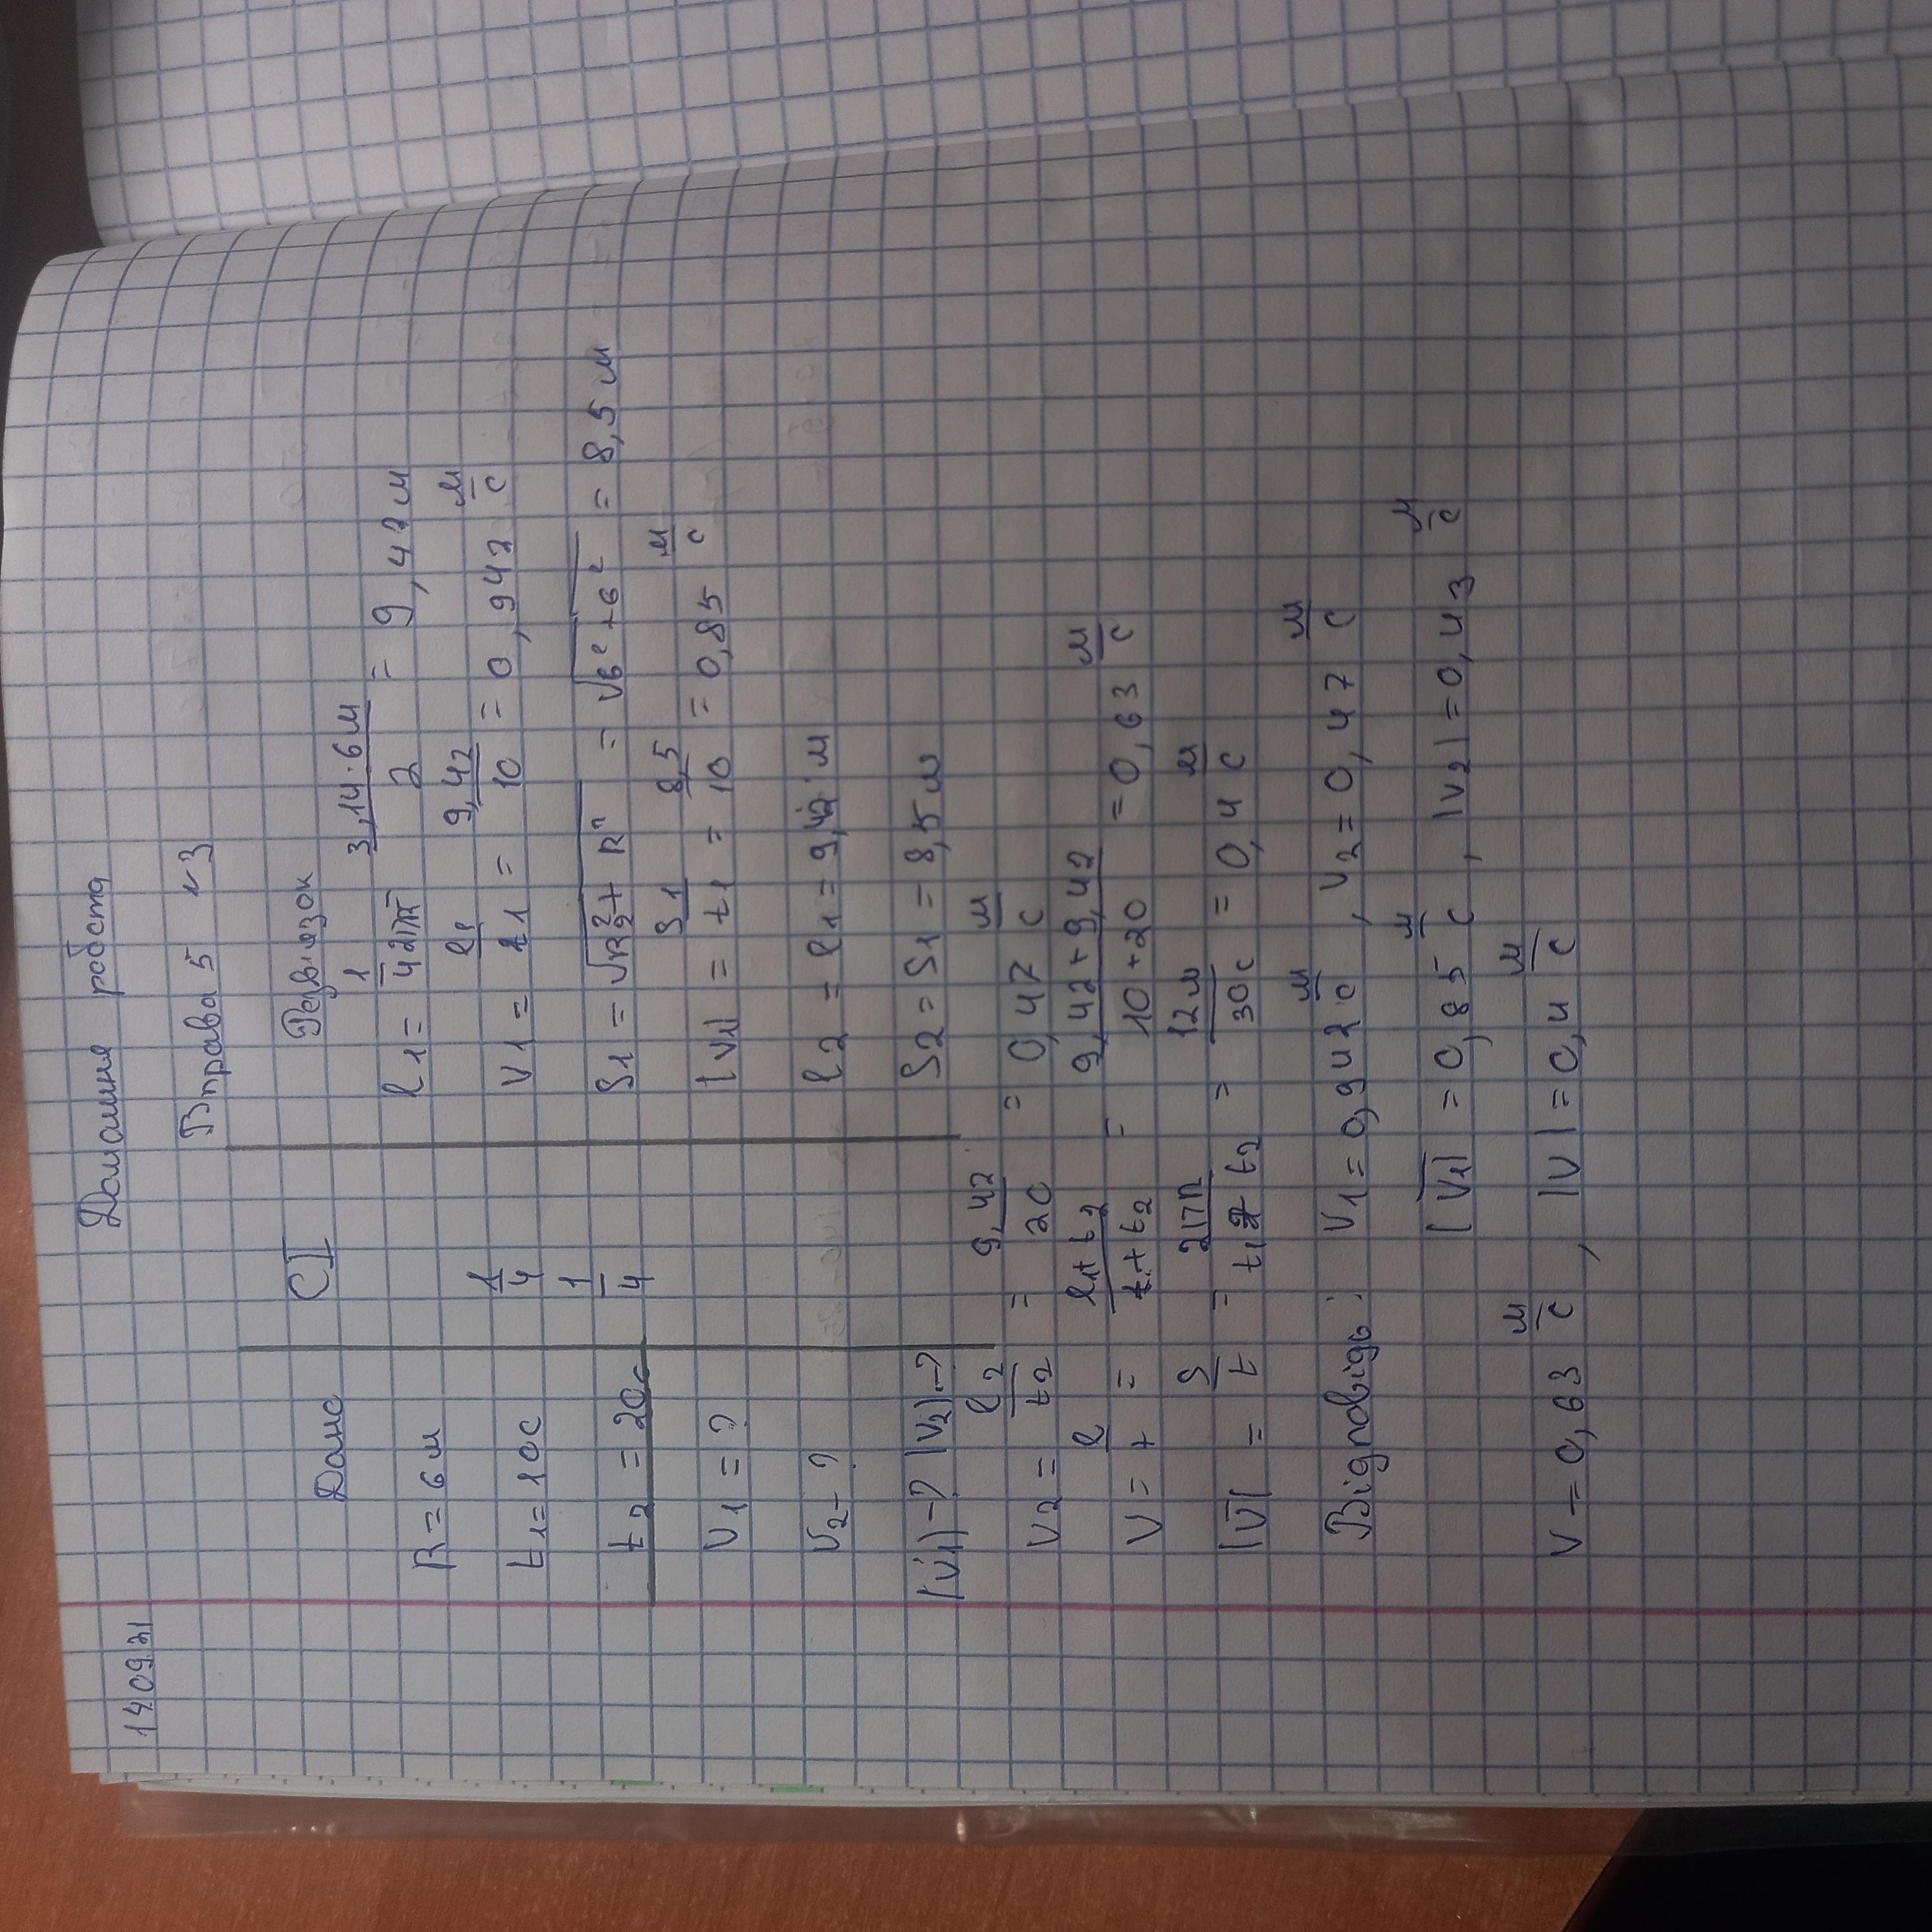 14.09.21
Домашня робота
Вправа 5 №3
Дано СІ Розв'язок
R = 6 м l1 = 1/4 2πR = 3,14·6м/2 = 9,42 м
t1 = 10 с 1/4 V1 = l1/t1 = 9,42/10 = 0,942 м/с
t2 = 20 с 1/4 S1 = √R² + R² = √6² + 6² = 8,5 м
V1 = ? |V1| = S1/t1 = 8,5/10 = 0,85 м/с
V2 - ? l2 = l1 = 9,42 м
|V1| - ? |V2| - ? S2 = S1 = 8,5 м
V2 = l2/t2 = 9,42/20 = 0,47 м/с
V = l/t = l1+t2/t1+t2 = 9,42+9,42/10+20 = 0,63 м/с
|V| = S/t = 2πR/t1 t2 = 12м/30с = 0,4 м/с
Відповідь: V1 = 0,942 м/с, V2 = 0,47 м/с
|V1| = 0,85 м/с, |V2| = 0,43 м/с
V = 0,63 м/с, |V| = 0,4 м/с